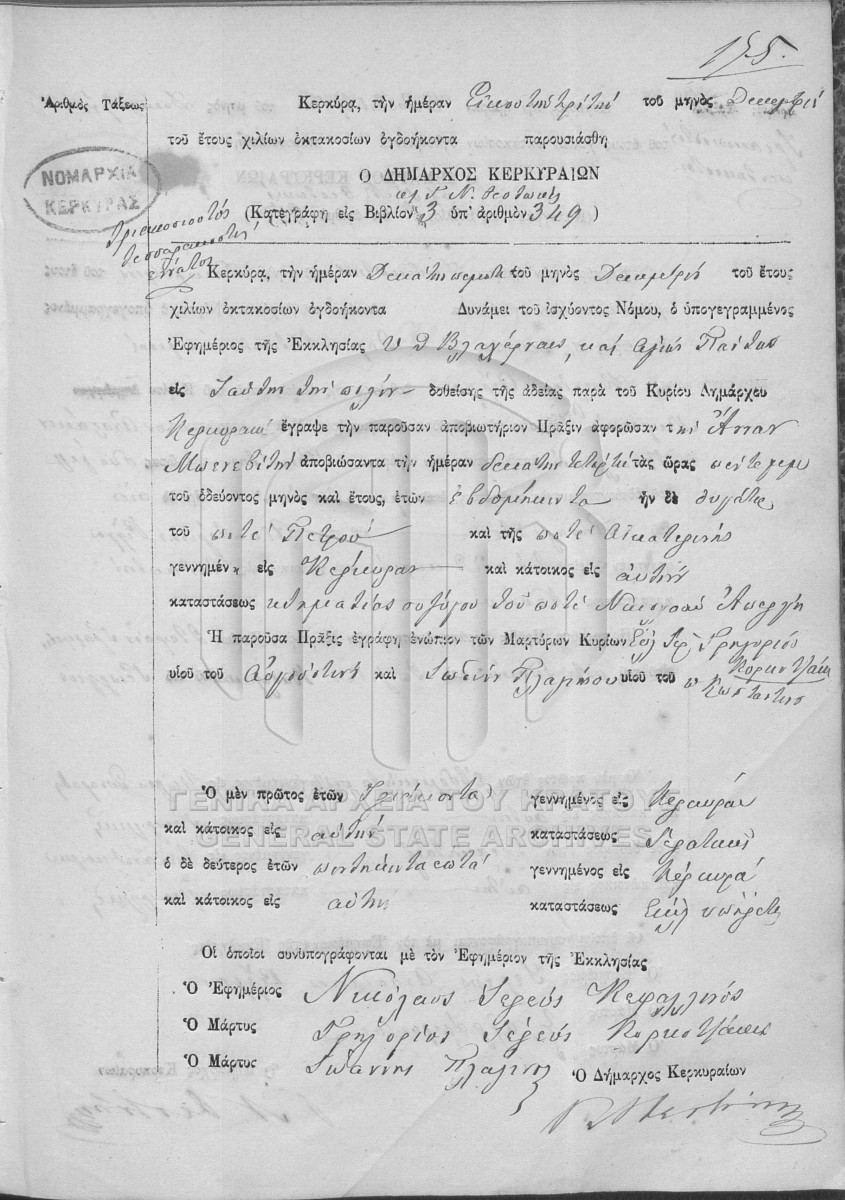 175.
Ἀριθμὸς Τάξεως
Κερκύρᾳ, τὴν ἡμέραν Εἰκοστὴν τρίτην τοῦ μηνὸς Δεκεμβρίου
τοῦ ἔτους χιλίων ὀκτακοσίων ὀγδοήκοντα παρουσιάσθη
Ο ΔΗΜΑΡΧΟΣ ΚΕΡΚΥΡΑΙΩΝ
Γ. Ν. Θεοτόκης
(Κατεγράφη εἰς Βιβλίον 3 ὑπ' ἀριθμὸν 349)
ΝΟΜΑΡΧΙΑ
ΚΕΡΚΥΡΑΣ
Τριακοσιοστός
τεσσαρακοστός
ἔνατος
Κερκύρᾳ, τὴν ἡμέραν Δεκάτην πέμπτην τοῦ μηνὸς Δεκεμβρίου τοῦ ἔτους
χιλίων ὀκτακοσίων ὀγδοήκοντα Δυνάμει τοῦ ἰσχύοντος Νόμου, ὁ ὑπογεγραμμένος
Ἐφημέριος τῆς Ἐκκλησίας Υ Θ Βλαχέρναις, καὶ Ἁγίων Πάντων
εἰς ταύτην τὴν πόλιν δοθείσης τῆς ἀδείας παρὰ τοῦ Κυρίου Δημάρχου
Κερκυραίων ἔγραψε τὴν παροῦσαν ἀποβιωτήριον Πρᾶξιν ἀφορῶσαν τὴν Ἄνναν
Μπενεβίτην ἀποβιώσαντα τὴν ἡμέραν δεκάτην τετάρτην τὰς ὥρας πέντε μ.μ.
τοῦ ὁδεύοντος μηνὸς καὶ ἔτους, ἐτῶν ἑβδομήκοντα ἦν δὲ θυγάτηρ
τοῦ ποτέ Πέτρου καὶ τῆς ποτέ Αἰκατερίνης
γεννημένη εἰς Κέρκυραν καὶ κάτοικος εἰς αὐτήν
καταστάσεως κτηματίας συζύγου τοῦ ποτέ Νικολάου Ἀπέργη
Ἡ παροῦσα Πρᾶξις ἐγράφη ἐνώπιον τῶν Μαρτύρων Κυρίων Γρηγορίου
Κορκοτζάκη
υἱοῦ τοῦ Αὐγουστίνου καὶ Ἰωάννου Πλαρινοῦ υἱοῦ τοῦ π Κωνσταντίνου
Ὁ μὲν πρῶτος ἐτῶν Τριάκοντα γεννημένος εἰς Κέρκυραν
καὶ κάτοικος εἰς αὐτήν καταστάσεως Ἱερατικῆς
ὁ δὲ δεύτερος ἐτῶν πεντήκοντα ὀκτώ γεννημένος εἰς Κέρκυρα
καὶ κάτοικος εἰς αὐτήν καταστάσεως Ἐκκλ ὑπηρέτης
ΓΕΝΙΚΑ ΑΡΧΕΙΑ ΤΟΥ ΚΡΑΤΟΥΣ
GENERAL STATE ARCHIVES
Οἱ ὁποῖοι συνυπογράφονται μὲ τὸν Ἐφημέριον τῆς Ἐκκλησίας
Ὁ Ἐφημέριος Νικόλαος Ἱερεύς Κεφαλληνός
Ὁ Μάρτυς Γρηγόριος Ἱερεύς Κορκοτζάκης
Ὁ Μάρτυς Ἰωάννης
Ὁ Δήμαρχος Κερκυραίων